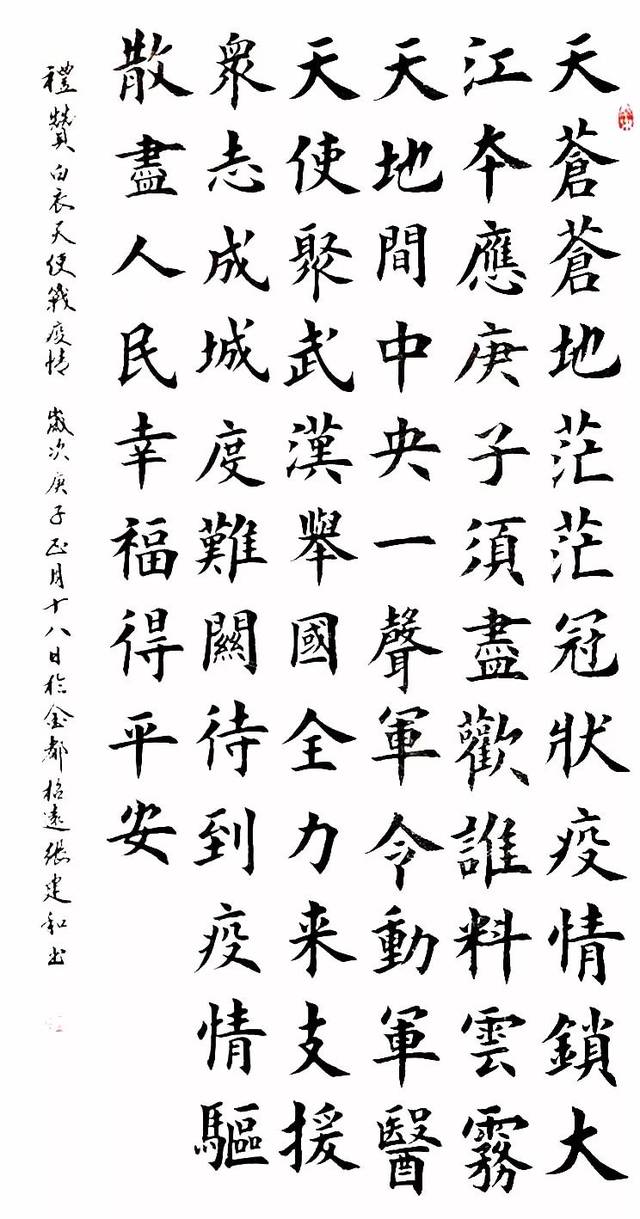 天蒼蒼地茫茫冠狀疫情鎖大
江本應庚子須盡歡誰料雲霧
天地間中央一聲軍令動軍醫
天使聚武漢舉國全力来支援
衆志成城度難關待到疫情驅
散盡人民幸福得平安
禮贊白衣天使戰疫情 歲次庚子正月十八日於金都招遠張建和书